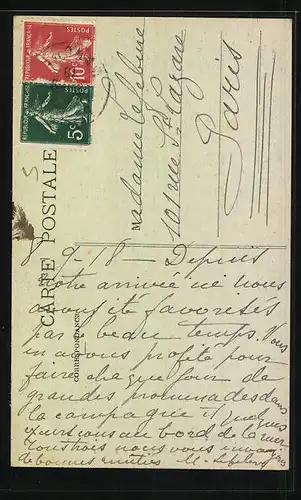 POSTES
RÉPUBLIQUE FRANÇAISE
10c
POSTES
RÉPUBLIQUE FRANÇAISE
5c
CARTE POSTALE
CORRESPONDANCE
Madame Lefebvre
101 rue St Lazare
Paris
9-18 - Depuis
notre arrivée ne nous
avons été favorisés
par beau temps. Nous
en avons profité pour
faire chaque jour de
grandes promenades dans
la campagne et quelques
excursions au bord de la mer
Tous trois nous vous envoyons
de bonnes amitiés